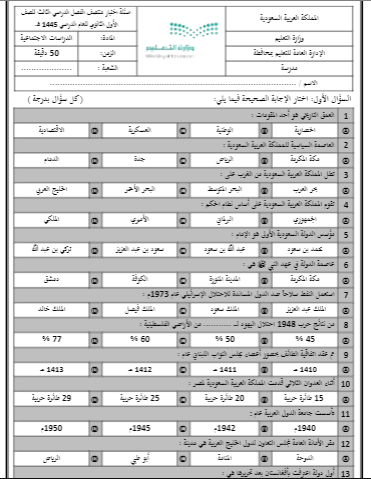 المملكة العربية السعودية
وزارة التعليم
الإدارة العامة للتعليم بمحافظة
مدرسة
وزارة التعليم
Ministry of Education
الأول الثانوي للعام الدراسي 1445 هـ
المادة: الدراسات الاجتماعية
الزمن: 50 دقيقة
الشعبة : ....................
الاسم / ....................
السؤال الأول: اختار الإجابة الصحيحة فيما يلي: (كل سؤال بدرجة )
1 العمق التاريخي هو أحد المقومات :
الحضارية الوطنية العسكرية الاقتصادية
2 العاصمة السياسية للمملكة العربية السعودية :
مكة المكرمة الرياض جدة الدمام
3 تطل المملكة العربية السعودية من الغرب على :
بحر العرب البحر المتوسط البحر الأحمر الخليج العربي
4 تقوم المملكة العربية السعودية على أساس نظام الحكم :
الجمهوري البرلماني الأميري الملكي
5 مؤسس الدولة السعودية الأولى هو الإمام :
محمد بن سعود عبد الله بن سعود سعود بن عبد العزيز تركي بن عبد الله
6 عاصمة الدولة في عهد النبي ﷺ هي :
مكة المكرمة المدينة المنورة الكوفة دمشق
7 استعمل النفط سلاحاً ضد الدول المساندة للاحتلال الإسرائيلي عام 1973م :
الملك عبد العزيز الملك سعود الملك فيصل الملك خالد
8 من نتائج حرب 1948 احتلال اليهود لـ ............ من الأراضي الفلسطينية :
45 % 50 % 60 % 77 %
9 تم عقد اتفاقية الطائف بحضور أعضاء مجلس النواب اللبناني عام :
1410 هـ 1411 هـ 1412 هـ 1413 هـ
10 أثناء العدوان الثلاثي قدمت المملكة العربية السعودية لمصر :
15 طائرة حربية 20 طائرة حربية 25 طائرة حربية 29 طائرة حربية
11 تأسست جامعة الدول العربية عام :
1940م 1942م 1945م 1950م
12 مقر الأمانة العامة لمجلس التعاون لدول الخليج العربية هي مدينة :
الدوحة المنامة أبو ظبي الرياض
13 أول دولة اعترفت بأفغانستان بعد تحريرها هي :